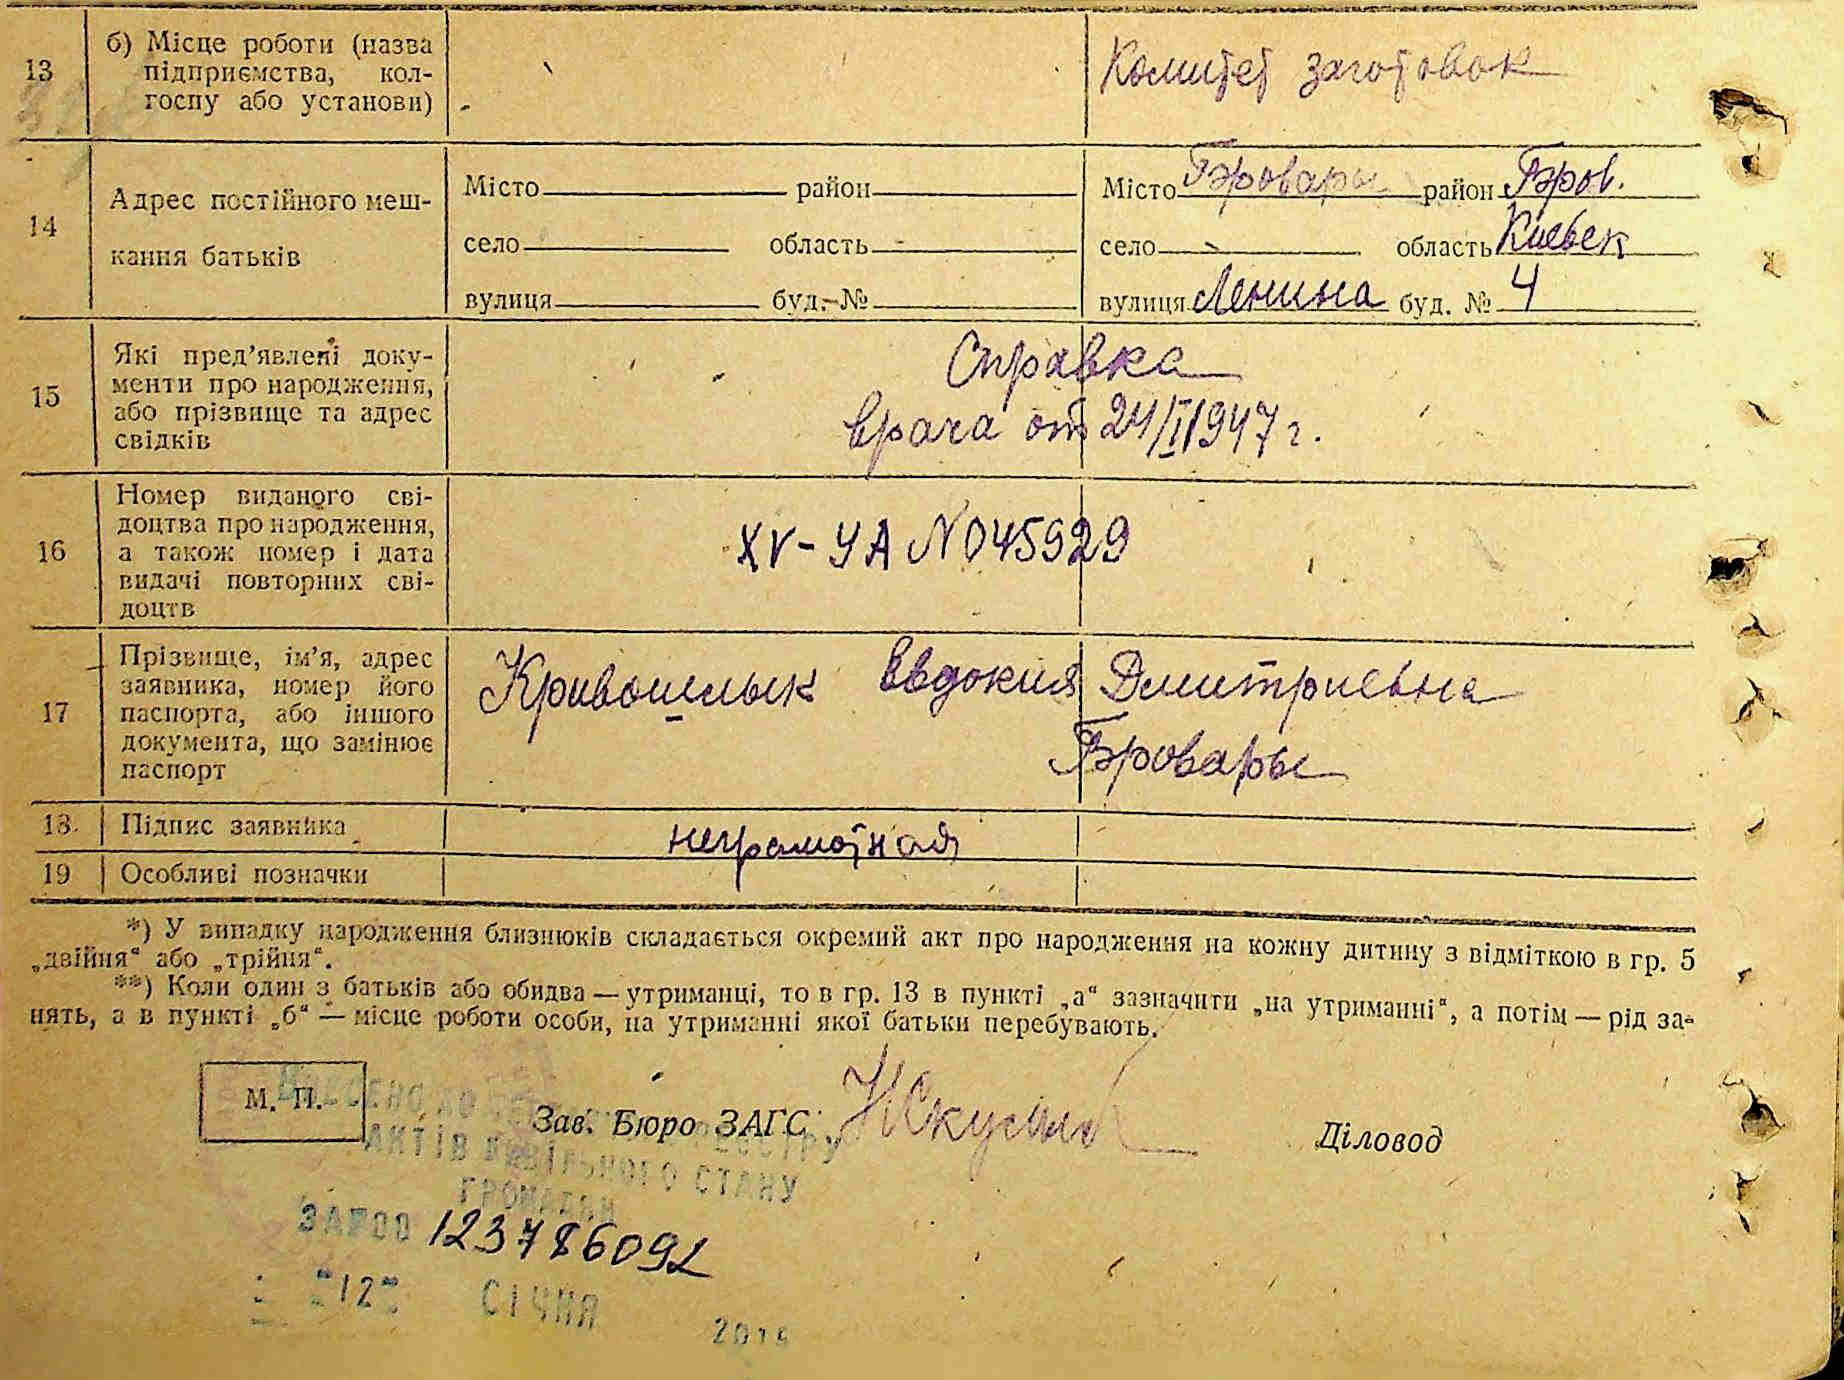 13
б) Місце роботи (назва
підприємства, кол-
госпу або установи)
Комитет заготовок
14
Адрес постійного меш-
кання батьків
Місто район
село область
вулиця буд. №
Місто Бровары район Бров.
село область Киевск
вулиця Ленина буд. № 4
15
Які пред'явлені доку-
менти про народження,
або прізвище та адрес
свідків
Справка
врача от 24/I 1947 г.
16
Номер виданого сві-
доцтва про народження,
а також номер і дата
видачі повторних сві-
доцтв
XV-УА N 045929
17
Прізвище, ім'я, адрес
заявника, номер його
паспорта, або іншого
документа, що замінює
паспорт
Евдокия Дмитриевна
Бровары
18. Підпис заявника
неграмотная
19 Особливі позначки
*) У випадку народження близнюків складається окремий акт про народження на кожну дитину з відміткою в гр. 5
„двійня“ або „трійня“.
**) Коли один з батьків або обидва — утриманці, то в гр. 13 в пункті „а“ зазначити „на утриманні“, а потім — рід за-
нять, а в пункті „б“ — місце роботи особи, на утриманні якої батьки перебувають.
М. П.
Зав. Бюро ЗАГС
Діловод
АКТІВ ЦИВІЛЬНОГО СТАНУ
ГРОМАДЯН
123786092
12 СІЧНЯ